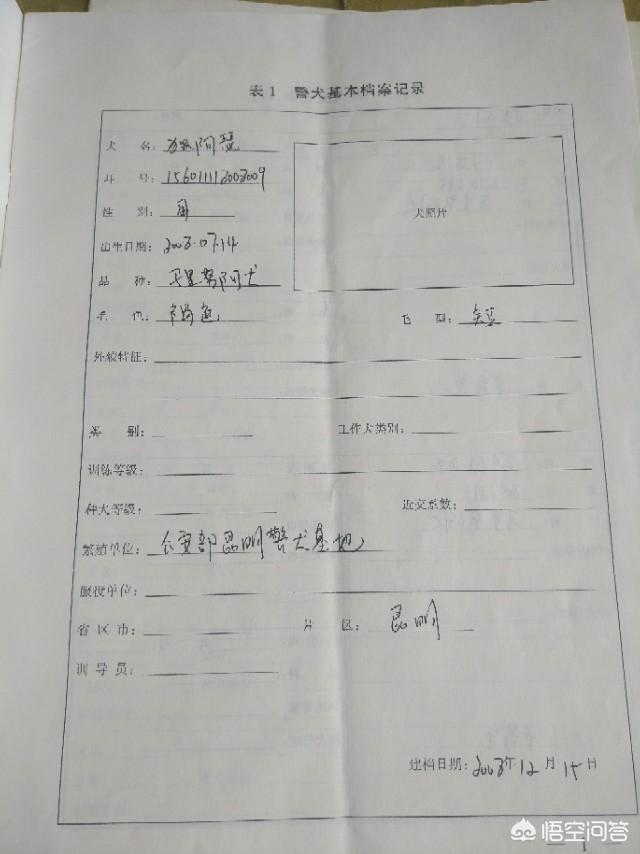 表1 警犬基本档案记录
犬 名: 阿瑟
耳 号: 156011112003009
犬照片
性 别:
出生日期: 2003.07.14
品 种: 马里努阿犬
毛 色: 褐色
毛 型:
外貌特征:
类 别: 工作犬类别:
训练等级:
种犬等级: 近交系数:
繁殖单位: 公安部昆明警犬基地
服役单位:
省区市: 片 区: 昆明
训导员:
建档日期: 2003年12月15日
悟空问答
1